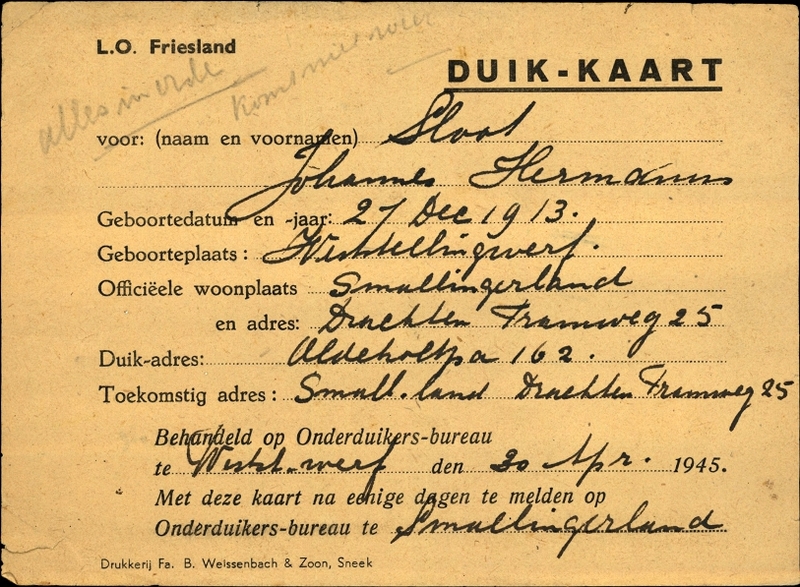 L.O. Friesland
DUIK-KAART
alles in orde
komt niet weer
voor: (naam en voornamen) Sloot
Johannes Hermanus
Geboortedatum en -jaar: 27 Dec 1913.
Geboorteplaats: Weststellingwerf.
Officiëele woonplaats Smallingerland
en adres: Drachten Tramweg 25
Duik-adres: Oldeholtpa 162.
Toekomstig adres: Small.land Drachten Tramweg 25
Behandeld op Onderduikers-bureau
te Westst.werf den 30 Apr. 1945.
Met deze kaart na eenige dagen te melden op
Onderduikers-bureau te Smallingerland
Drukkerij Fa. B. Weissenbach & Zoon, Sneek